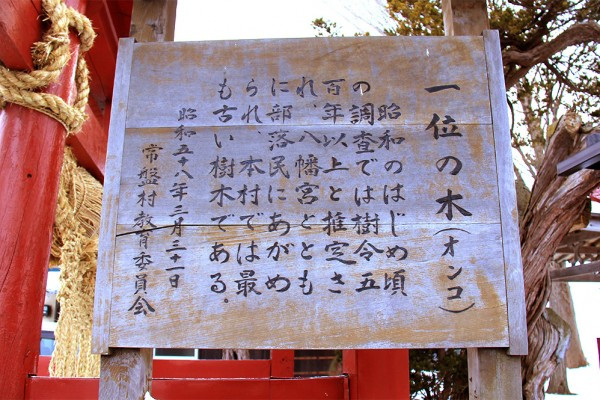 一位の木(オンコ)
昭和のはじめ頃
の調査では樹令五
百年以上と推定さ
れ、八幡宮ととも
に部落民にあがめ
られ、本村では最
も古い樹木である。
昭和五十八年三月三十一日
常盤村教育委員会